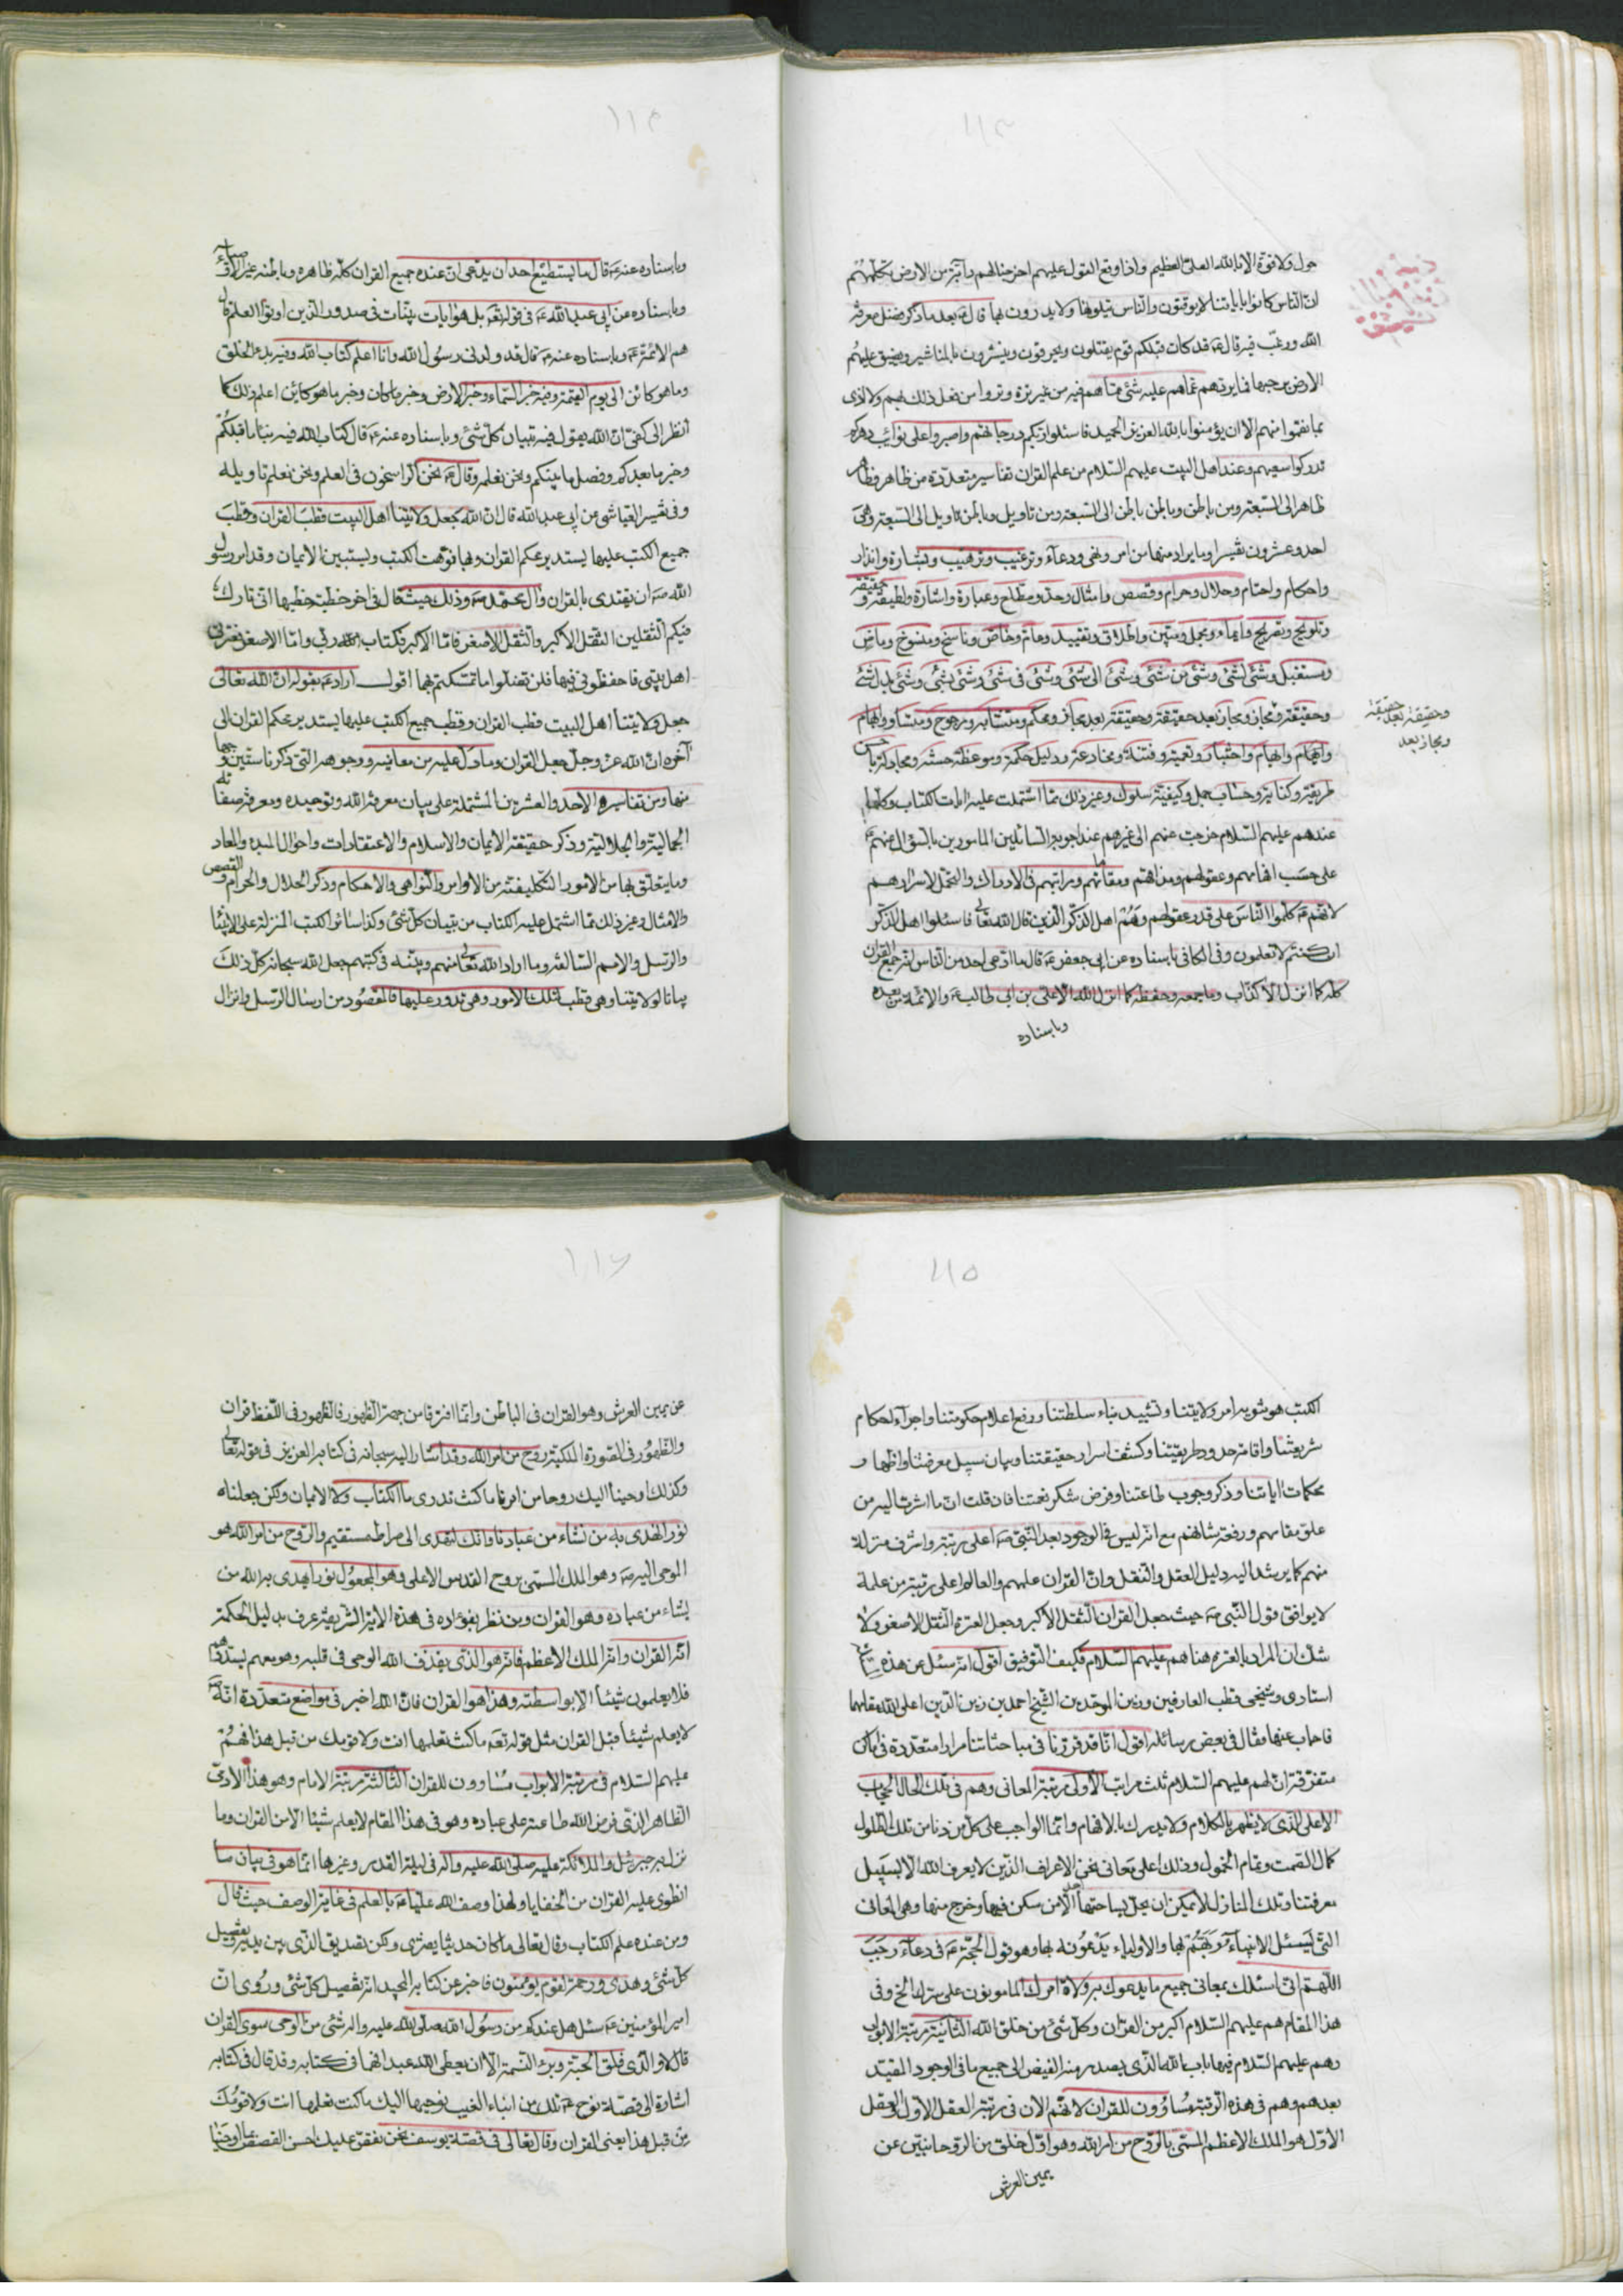 ١١٣
حول ولا قوة الا بالله العلي العظيم واذا وقع القول عليهم اخرجنا لهم دابّة من الارض تكلّمهم
انّ الناس كانوا باياتنا لا يوقنون والناس يتلونها ولا يدرون بها قال ع بعد ما ذكر فضل معرفة
الله ورغّب فيه قال ع قد كان قبلكم قوم يقتلون ويحرقون وينشرون بالمناشير ويضيق عليهم
الارض برحبها فما يردهم عمّاهم عليه شئ ممّاهم فيه من غير ترة وتروا من فعل ذلك بهم ولا اذى
بما نقموا منهم الا ان يؤمنوا بالله العزيز الحميد فاسئلوا ربكم درجاتهم واصبروا على نوائب دهركم
تدركوا سعيهم وعند اهل البيت عليهم السلام من علم القران تفاسير متعدّدة من ظاهر وظاهر
ظاهر الى السبعة ومن باطن وباطن باطن الى السبعة ومن تاويل وباطن تاويل الى السبعة وهى
احد وعشرون تفسيرا وما يراد منها من امر ونهى ودعاء وترغيب وترهيب وبشارة وانذار
واحكام واحتام وحلال وحرام وقصص وامثال وحدّ ومطلع وعبارة واشارة ولطيفة وحقيقة
وتلويح وتصريح وايماء ومجمل ومبيّن واطلاق وتقييد وعام وخاصّ وناسخ ومنسوخ وماض
ومستقبل وشئ لشئ وشئ من شئ وشئ الى شئ وشئ فى شئ وشئ بشئ وشئ بدل شئ
وحقيقة ومجاز ومجاز بعد حقيقة وحقيقة بعد مجاز ومحكم ومتشابه ومرجوح ومتساو وابهام
وحقيقة بعد حقيقة
ومجاز بعد
وايهام والهام واختبار وتعمية وفتنة ومخادعة ودليل حكمة وموعظة حسنة ومجادلة باحسن
طريقة وكناية وحساب جمل وكيفيّة سلوك وغير ذلك ممّا اشتملت عليه ايات الكتاب وكلّها
عندهم عليهم السلام خرجت عنهم الى غيرهم عند اجوبة السائلين المامورين بالسؤال عنهم ع
على حسب افهامهم وعقولهم ومذاقهم ومقاماتهم ومراتبهم فى الادراك والتحمل لاسرارهم
لانهم ع كلّموا الناس على قدر عقولهم وهم اهل الذكر الذين قال الله تعالى فاسئلوا اهل الذكر
ان كنتم لا تعلمون وفى الكافى باسناده عن ابى جعفر ع قال ما ادّعى احد من الناس انه جمع القران
كله كما انزل الا كذّاب وما جمعه وحفظه كما انزل الله الا على بن ابى طالب ع والائمة من بعده
وباسناده
١١٤
وباسناده عنه ع قال ما يستطيع احد ان يدّعى ان عنده جميع القران كلّه ظاهره وباطنه غير الاوصياء
وباسناده عن ابى عبد الله ع فى قوله تعه بل هو ايات بيّنات فى صدور الذين اوتوا العلم قال
هم الائمة ع وباسناده عنه ع قال قد ولدنى رسول الله وانا اعلم كتاب الله وفيه بدء الخلق
وما هو كائن الى يوم القيمة وفيه خبر السماء وخبر الارض وخبر ما كان وخبر ما هو كائن اعلم ذلك كما
انظر الى كفّى انّ الله يقول فيه تبيان كلّ شئ وباسناده عنه ع قال كتاب الله فيه نبأ ما قبلكم
وخبر ما بعدكم وفصل ما بينكم ونحن نعلمه وقال ع نحن الراسخون فى العلم ونحن نعلم تاويله
وفى تفسير العياشى عن ابى عبد الله قال انّ الله جعل ولايتنا اهل البيت قطب القران وقطب
جميع الكتب عليها يستدير محكم القران وبها نوّهت الكتب ويستبين الايمان وقد امر رسول
الله ص ان يقتدى بالقران وال محمّد ص وذلك حيث قال فى اخر خطبة خطبها انى تارك
فيكم الثقلين الثقل الاكبر والثقل الاصغر فامّا الاكبر فكتاب ربى وامّا الاصغر فعترتى
اهل بيتى فاحفظونى فيهما فلن تضلّوا ما تمسكتم بهما اقول اراد ع بقوله ان الله تعالى
جعل ولايتنا اهل البيت قطب القران وقطب جميع الكتب عليها يستدير محكم القران الى
آخره ان الله عز وجل جعل القران وما دلّ عليه من معانيه ووجوهه التى ذكرنا ستين وجها
منها ومن تفاسيره الاحد والعشرين المشتملة على بيان معرفة الله وتوحيده ومعرفة صفاته
الجمالية والجلالية وذكر حقيقة الايمان والاسلام والاعتقادات واحوال المبدء والمعاد
وما يتعلّق بها من الامور التكليفيّة من الاوامر والنواهى والاحكام وذكر الحلال والحرام والقصص
والامثال وغير ذلك ممّا اشتمل عليه الكتاب من تبيان كلّ شئ وكذا سائر الكتب المنزلة على الانبياء
والرسل والامم السالفة وما اراد الله تعالى منهم وبيّنه فى كتبهم جعل الله سبحانه كل ذلك
بيانا لولايتنا وهى قطب لتلك الامور وهى تدور عليها فالمقصود من ارسال الرسل وانزال
١١٥
الكتب هو تنويه امر ولايتنا وتشييد بناء سلطنتنا ورفع اعلام حكومتنا واجراء احكام
شريعتنا واقامة حدود طريقتنا وكشف اسرار حقيقتنا وبيان سبيل معرفتنا واظهار
محكمات اياتنا وذكر وجوب طاعتنا وفرض شكر نعمتنا فان قلت انّ ما اشرت اليه من
علوّ مقامهم ورفعة شانهم مع انه ليس فى الوجود بعد النّبى ص اعلى رتبة واشرف منزلة
منهم كما يرشد اليه دليل العقل والنقل وانّ القران علمهم والعالم اعلى رتبة من علمه
لا يوافق قول النّبى ص حيث جعل القران الثقل الاكبر وجعل العترة الثقل الاصغر ولا
شك ان المراد بالعترة هنا هم عليهم السلام فكيف التوفيق اقول انه سئل عن هذه
استادى وشيخى قطب العارفين وزين الموحّدين الشيخ احمد بن زين الدين اعلى الله مقامهما
فاجاب عنها فقال فى بعض رسائله اقول انّا قد قررنا فى مباحثاتنا مرارا متعدّدة فى اماكن
متفرّقة ان لهم عليهم السلام ثلث مراتب الاولى مرتبة المعانى وهم فى تلك الحال الحجاب
الاعلى الذى لا يظهر بالكلام ولا يدرك بالافهام وانّما الواجب على كلّ من دنا من تلك الطلول
كمال الصمت وتمام الخمول وذلك اعلى معانى نحن الاعراف الذين لا يعرف الله الا بسبيل
معرفتنا وتلك المنازل لا يمكن ان يحلّ بساحتها احد الا من سكن فيها وخرج منها وهى المعانى
التى يسئل الانبياء ربّهم بها والاولياء يدعونه بها وهو قول الحجّة ع فى دعاء رجب
اللّهم انى اسئلك بمعانى جميع ما يدعوك به ولاة امرك المامونون على سرّك الخ وفى
هذا المقام هم عليهم السلام اكبر من القران وكل شئ من خلق الله الثانية مرتبة الابواب
وهم عليهم السلام فيها باب الله الذى يصدر منه الفيض الى جميع ما فى الوجود المقيّد
بعدهم وهم فى هذه الرتبة مساوون للقران لانهم الان فى رتبة العقل الاول والعقل
الاوّل هو الملك الاعظم المسمّى بالروح من امر الله وهو اوّل خلق من الروحانيّين عن
يمين العرش
١١٦
عن يمين العرش وهو القران فى الباطن وانّما افترقا من جهة الظهور فالظهور فى اللّفظ قران
والظهور فى الصّورة الملكيّة روح من امر الله وقد اشار اليه سبحانه فى كتابه العزيز فى قوله تعالى
وكذلك اوحينا اليك روحا من امرنا ما كنت تدرى ما الكتاب ولا الايمان ولكن جعلناه
نورا نهدى به من نشاء من عبادنا وانك لتهدى الى صراط مستقيم والروح من امر الله هو
الموحى اليه ص وهو الملك المسمّى بروح القدس الاعلى وهو المجعول نورا يهدى به الله من
يشاء من عباده وهو القران ومن نظر بفؤاده فى هذه الاية الشريفة عرف بدليل الحكمة
انّه القران وانّه الملك الاعظم فانّه هو الذى يقذف الله الوحى فى قلبه وهو معهم يسدّدهم
فلا يعلمون شيئا الا بواسطته وهذا هو القران فان الله اخبر فى مواضع متعدّدة انّه ص
لا يعلم شيئا قبل القران مثل قوله تعه ما كنت تعلمها انت ولا قومك من قبل هذا فهم
عليهم السلام فى مرتبة الابواب مساوون للقران الثالثة مرتبة الامام وهو هذا الآدمىّ
الظاهر الذى فرض الله طاعته على عباده وهو فى هذا المقام لا يعلم شيئا الا من القران وما
نزل به جبرئيل والملائكة عليه صلى الله عليه واله فى ليلة القدر وغيرها انّما هو فى بيان ما
انطوى عليه القران من الخفايا ولهذا وصف الله عليّا ع بالعلم فى غاية الوصف حيث قال
ومن عنده علم الكتاب وقال تعالى ما كان حديثا يفترى ولكن تصديق الذى بين يديه وتفصيل
كلّ شئ وهدى ورحمة لقوم يؤمنون فاخبر عن كتابه المجيد انّه تفصيل كلّ شئ وروى انّ
امير المؤمنين ع سئل هل عندكم من رسول الله صلى الله عليه واله شئ من الوحى سوى القران
قال لا والذى فلق الحبّة وبرئ النسمة الا ان يعطى الله عبدا فهما فى كتابه وقد قال فى كتابه
اشارة الى قصّة نوح ع تلك من انباء الغيب نوحيها اليك ما كنت تعلمها انت ولا قومك
من قبل هذا يعنى القران وقال تعالى فى قصّة يوسف نحن نقصّ عليك احسن القصص بما اوحينا